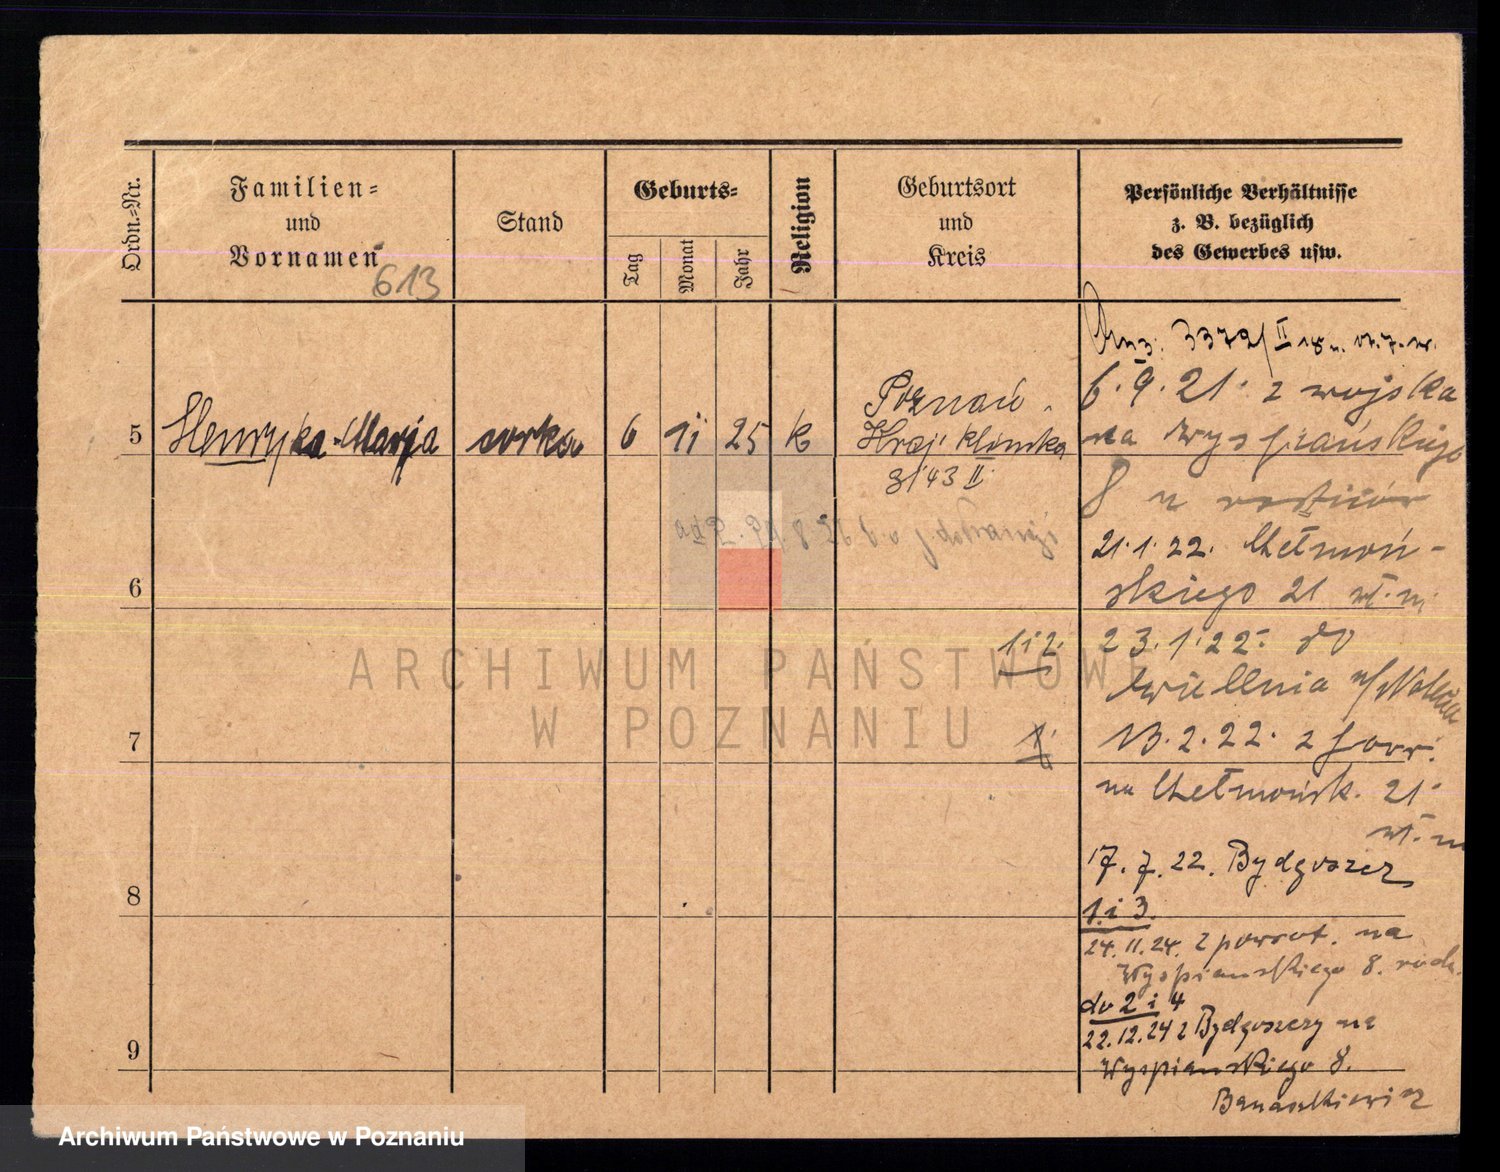 Ordn.-Nr.
Familien-
und
Vornamen
613
Stand
Geburts-
Tag
Monat
Jahr
Religion
Geburtsort
und
Kreis
Persönliche Verhältnisse
z. B. bezüglich
des Gewerbes usw.
3372/II
6.9.21. z wojska
na Wyspiańskiego
8 u rodziców
21.1.22. Chełmoń-
skiego 21 wł. m.
1 i 2. 23.1.22. do
Wielenia n/Notecią
1. 13.2.22. z powr.
na Chełmońsk. 21.
wł. m
17.7.22. Bydgoszcz
1 i 3.
24.11.24. z powrot. na
Wyspianskiego 8. rodz.
do 2 i 4
22.12.24 z Bydgoszczy na
Wyspianskiego 8.
Banaszkiewicz
5 Henryka-Marja córka 6 11 25 k Poznań
31/43 II
6
7
8
9
ARCHIWUM PAŃSTWOWE
W POZNANIU
Archiwum Państwowe w Poznaniu